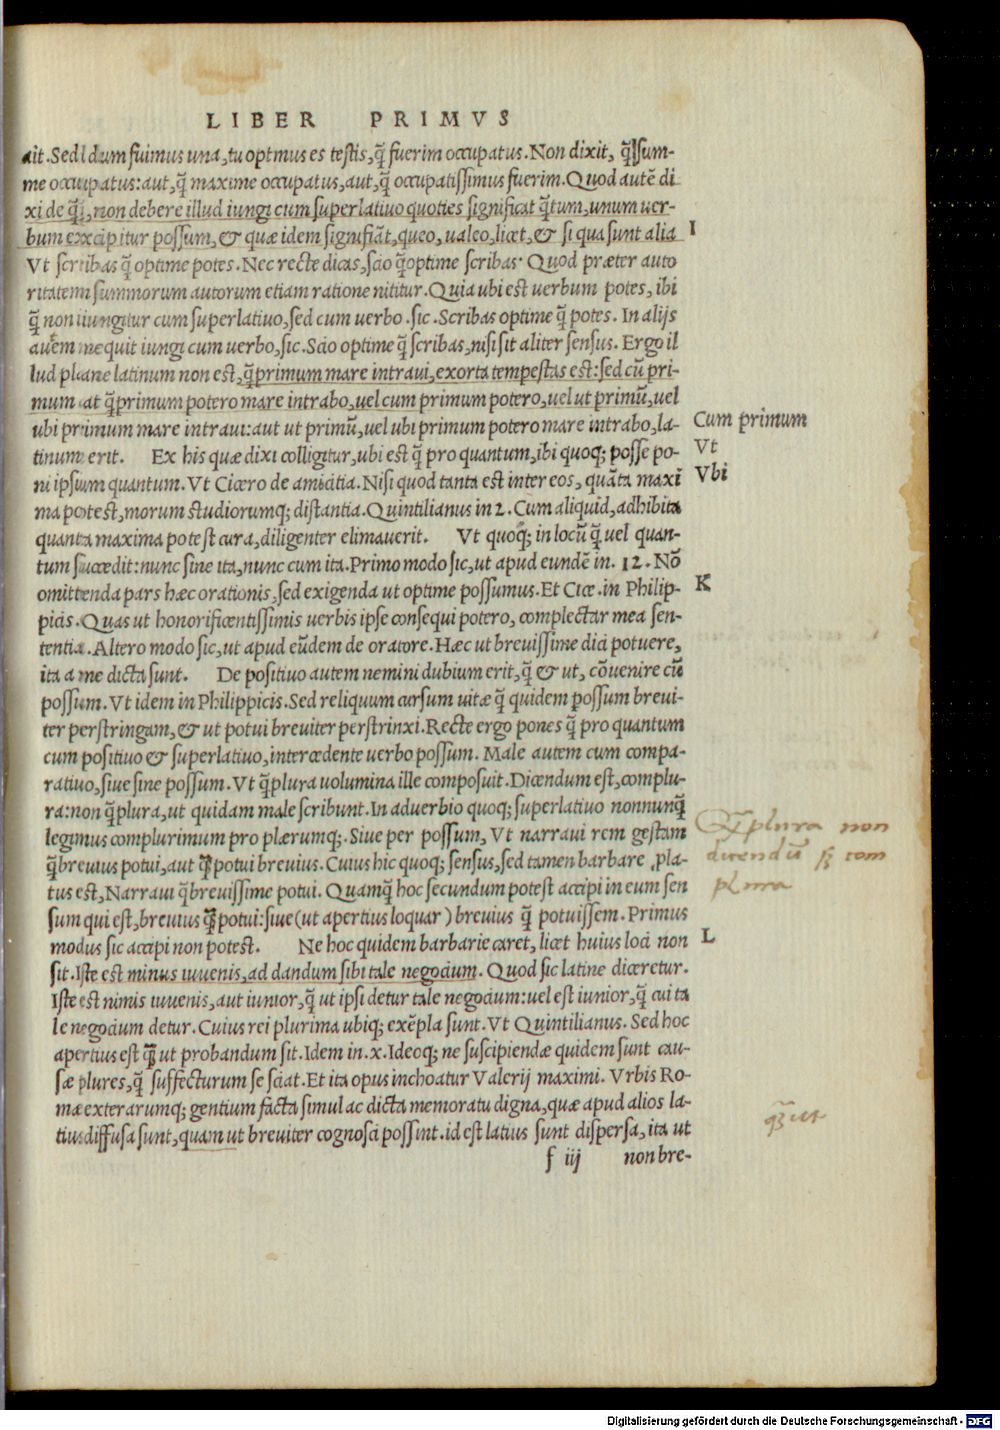 LIBER PRIMVS
ait. Sed dum fuimus una, tu optmus es testis, q̄ fuerim occupatus. Non dixit, q̄ sum-
me occupatus: aut, q̄ maxime occupatus, aut, q̄ occupatissimus fuerim. Quod autē di
xi de q̄, non debere illud iungi cum superlatiuo quoties significat q̄tum, unum uer-
bum excipitur possum, & quæ idem signifiāt, queo, ualeo, licet, & si qua sunt alia
I
Vt scribas q̄ optime potes. Nec recte dicas, scio q̄optime scribas. Quod præter auto
ritatem summorum autorum etiam ratione nititur. Quia ubi est uerbum potes, ibi
q̄ non iungitur cum superlatiuo, sed cum uerbo. sic. Scribas optime q̄ potes. In alijs
autem nequit iungi cum uerbo, sic. Scio optime q̄ scribas, nisi sit aliter sensus. Ergo il
lud plane latinum non est, q̄primum mare intraui, exorta tempestas est: sed cū pri-
mum aut q̄primum potero mare intrabo, uel cum primum potero, uel ut primū, uel
ubi primum mare intraui: aut ut primū, uel ubi primum potero mare intrabo, la-
Cum primum
tinum erit. Ex his quæ dixi colligitur, ubi est q̄ pro quantum, ibi quoq; posse po-
Vt
ni ipsum quantum. Vt Cicero de amicitia. Nisi quod tanta est inter eos, quāta maxi
Vbi
ma potest, morum studiorumq; distantia. Quintilianus in 2. Cum aliquid, adhibita
quanta maxima potest cura, diligenter elimauerit. Vt quoq; in locū q̄ uel quan-
tum succedit: nunc sine ita, nunc cum ita. Primo modo sic, ut apud eundē in. 12. Nō
omittenda pars hæc orationis, sed exigenda ut optime possumus. Et Cice. in Philip-
K
picis. Quas ut honorificentissimis uerbis ipse consequi potero, complectar mea sen-
tentia. Altero modo sic, ut apud eūdem de oratore. Hæc ut breuissime dici potuere,
ita a me dicta sunt. De positiuo autem nemini dubium erit, q̄ & ut, cōuenire cū
possum. Vt idem in Philippicis. Sed reliquum cursum uitæ q̄ quidem possum breui-
ter perstringam, & ut potui breuiter perstrinxi. Recte ergo pones q̄ pro quantum
cum positiuo & superlatiuo, intercedente uerbo possum. Male autem cum compa-
ratiuo, siue sine possum. Vt q̄plura uolumina ille composuit. Dicendum est, complu-
ra: non q̄plura, ut quidam male scribunt. In aduerbio quoq; superlatiuo nonnunq̄
legimus complurimum pro plærumq;. Siue per possum, Vt narraui rem gestam
q̄breuius potui, aut q̄ potui breuius. Cuius hic quoq; sensus, sed tamen barbare ,pla-
tus est, Narraui q̄breuissime potui. Quamq̄ hoc secundum potest accipi in eum sen
Q̄plura non
dicendū sz com
plura
sum qui est, breuius q̄ potui: siue (ut apertius loquar) breuius q̄ potuissem. Primus
modus sic accipi non potest. Ne hoc quidem barbarie caret, licet huius loci non
L
sit. Iste est minus iuuenis, ad dandum sibi tale negocium. Quod sic latine diceretur.
Iste est nimis iuuenis, aut iunior, q̄ ut ipsi detur tale negocium: uel est iunior, q̄ cui ta
le negocium detur. Cuius rei plurima ubiq; exēpla sunt. Vt Quintilianus. Sed hoc
apertius est q̄ ut probandum sit. Idem in. x. Ideoq; ne suscipiendæ quidem sunt cau-
sæ plures, q̄ suffecturum se sciat. Et ita opus inchoatur Valerij maximi. Vrbis Ro-
mæ exterarumq; gentium facta simul ac dicta memoratu digna, quæ apud alios la-
tius diffusa sunt, quam ut breuiter cognosci possint. id est latius sunt dispersa, ita ut
q̄ ut
f iij non bre-
Digitalisierung gefördert durch die Deutsche Forschungsgemeinschaft - DFG